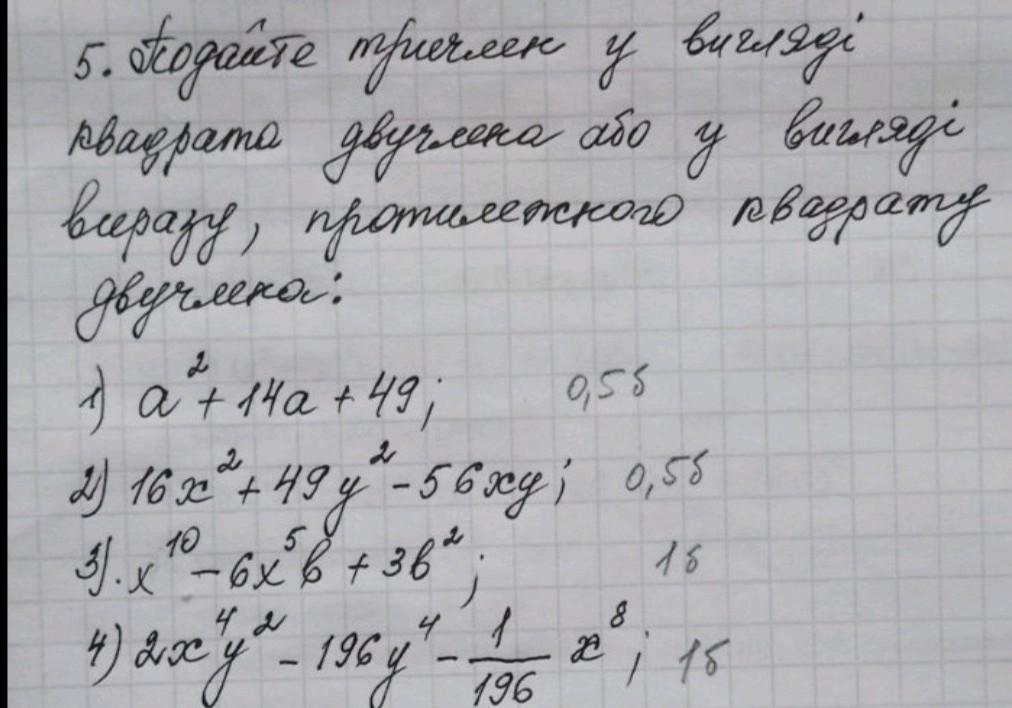 5. Подайте тричлен у вигляді
квадрата двучлена або у вигляді
виразу, протилежного квадрату
двучлена:
1) a² + 14a + 49; 0,5б
2) 16x² + 49y² - 56xy; 0,5б
3). x¹⁰ - 6x⁵b + 3b²; 1б
4) 2x⁴y² - 196y⁴ - 1/196 x⁸; 1б